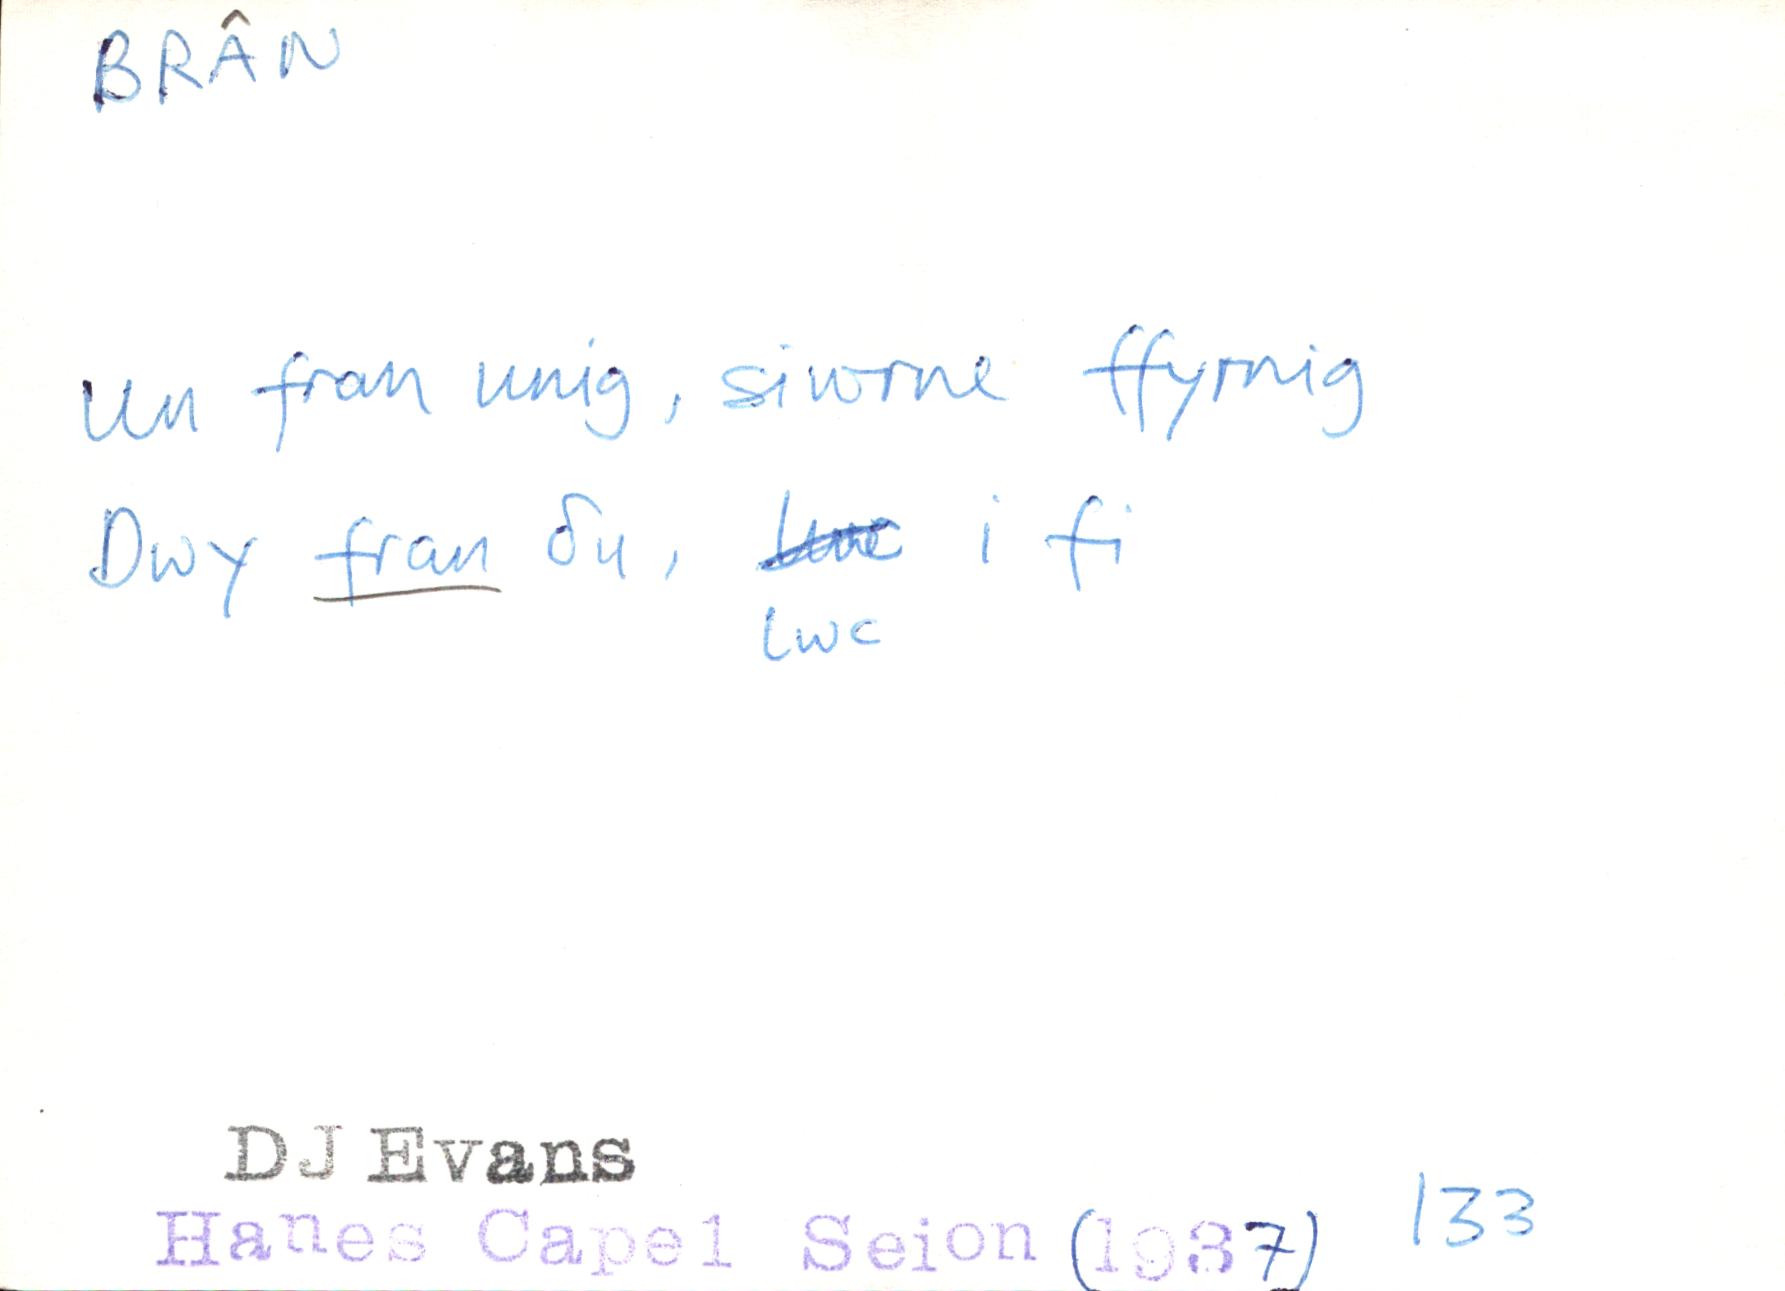 BRÂN
Un fran unig, siwrne ffyrnig
Dwy fran δu, lwc i fi
lwc
DJ Evans
Hanes Capel Seion (1937) 133